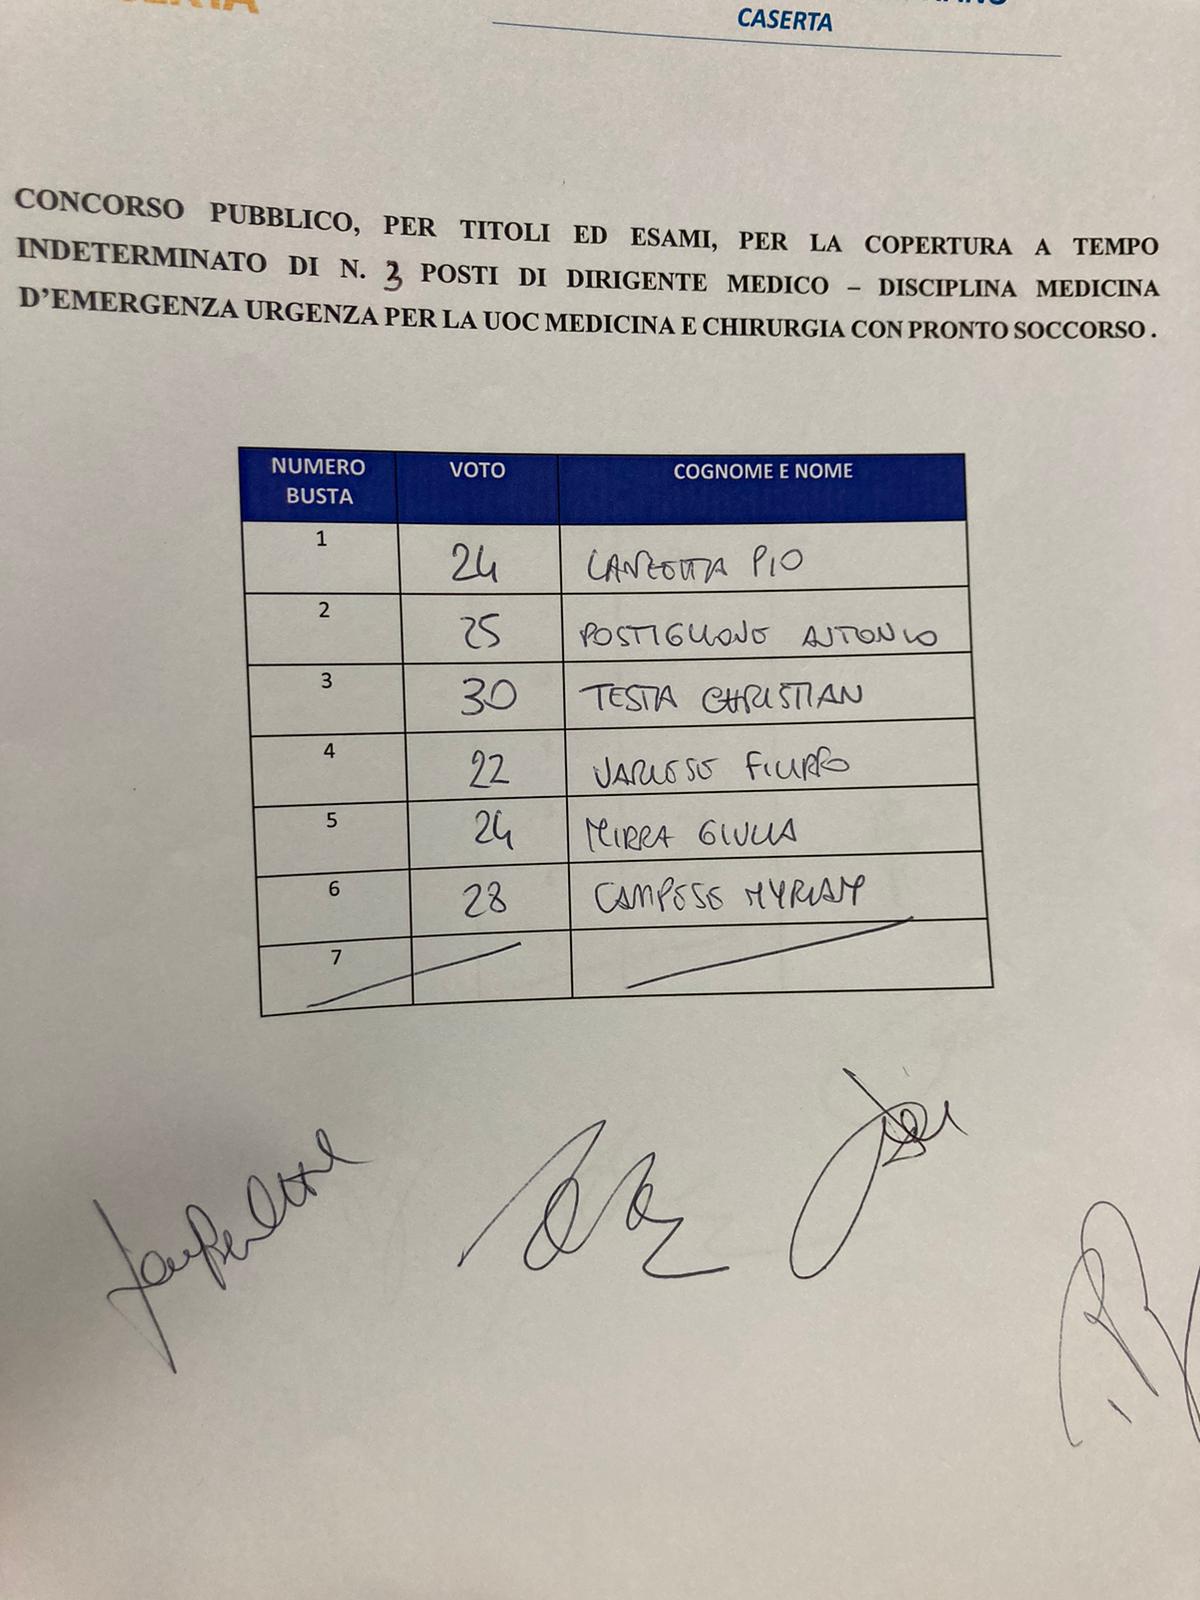 CASERTA
CONCORSO PUBBLICO, PER TITOLI ED ESAMI, PER LA COPERTURA A TEMPO
INDETERMINATO DI N. 3 POSTI DI DIRIGENTE MEDICO – DISCIPLINA MEDICINA
D'EMERGENZA URGENZA PER LA UOC MEDICINA E CHIRURGIA CON PRONTO SOCCORSO.
NUMERO BUSTA VOTO COGNOME E NOME
1 24 LANZOTTA PIO
2 25 POSTIGLIONE ANTONIO
3 30 TESTA CHRISTIAN
4 22 VARLESE FILIPPO
5 24 MIRRA GIULIA
6 28 CAMPESE MYRIAM
7